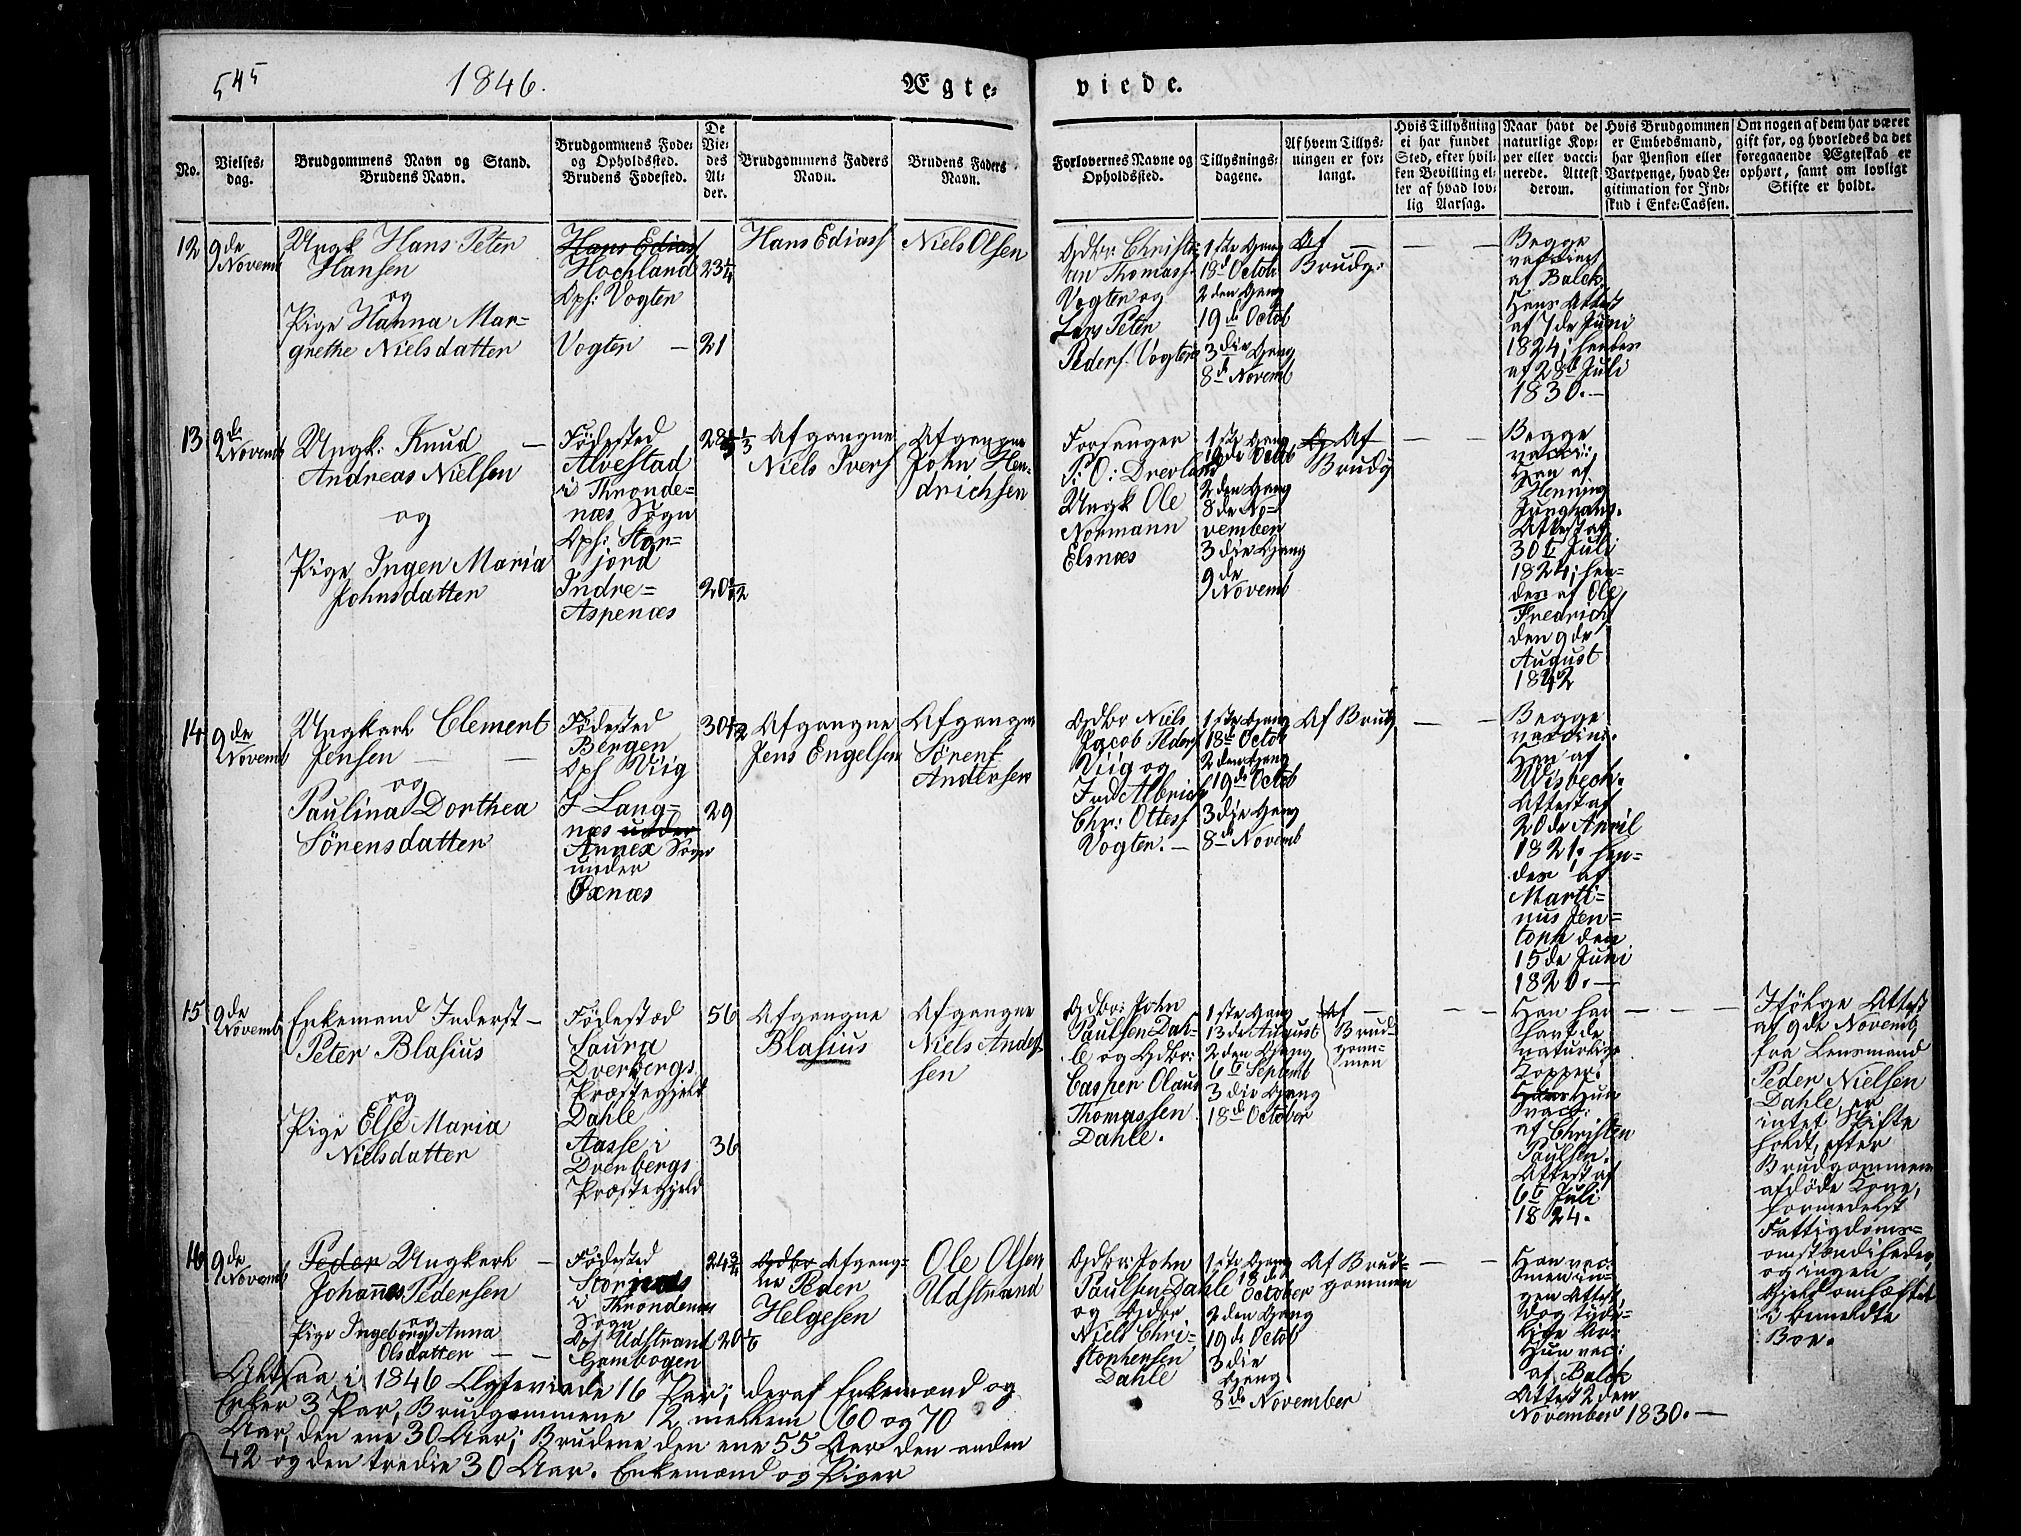 545
1846.
Ægte-
viede.
No.
Vielses-
dag.
Brudgommens Navn og Stand.
Brudens Navn.
Brudgommens Føde-
og Opholdssted.
Brudens Fødested.
De
Vie-
des
Al-
der.
Brudgommens Faders
Navn.
Brudens Faders
Navn.
Forlovernes Navne og
Opholdssted.
Tillysnings-
dagene.
Af hvem Tillys-
ningen er for-
langt.
Hvis Tillysning
ei har fundet
Sted, efter hvil-
ken Bevilling el-
ler af hvad lov-
lig Aarsag.
Naar havt de
naturlige Kop-
per eller vacci-
nerede. Attest
derom.
Hvis Brudgommen
er Embedsmand,
har Pension eller
Vartpenge, hvad Le-
gitimation for Ind-
skud i Enke-Cassen.
Om nogen af dem har været
gift før, og hvorledes da det
foregaaende Ægteskab er
ophørt, samt om lovligt
Skifte er holdt.
12
9de
Novemb
Ungk Hans Peter
Hansen
og
Pige Hanna Mar-
grethe Nielsdatter
Hans Edias
Hochland
Oph: Vogten
Vogten —
23 1/4
21
Hans Ediass
Niels Olsen
Gdbr: Christi-
an Thomass
Vogten og
Lars Peter
Peders. Vogten
1ste Gang
18d Octob
2den Gang
19de Octob
3die Gang
8d Novemb
Af —
Brudg:
Begge
vaccines
af Balck.
Hans Attest
af 7de Juni
1824; hendes
af 28d Juli
1830. —
13
9de
Novemb
Ungk: Knud —
Andreas Nielsen
og
Pige Ingen Maria
Johnsdatter
Fødested
Alvestad
i Thronde-
næs Sogn
Oph: Stor-
jord
Indre-
Aspenæs
28 1/3
20 1/2
Afgangne
Niels Ivers
Afgangne
John Hen-
drichsen
Forsanger
P: O: Drevland
Ungk Ole
Normann
Elsnæs
1ste Gang
19de Octob
2den Gang
8de No-
vember
3die Gang
9de
Novemb
Af
Brudg
Begge
vacci:
Han af
Henning
Junghans.
Attest af
30te Juli
1824; hen-
des af Ole
Fredrich
den 9de
August
1842
14
9de
Novemb
Ungkarl Clement
Jensen —
og
Paulina Dorthea
Sörensdatter
Fødested
Bergen
Oph Viig
F Lang-
næs under
Annex Sogn
under
Öxnæs
30 1/2
29
Afgangne
Jens Engelsen
Afgangne
Sören
Andersen
Gdbr Niels
Jacob Peders
Viig og
Fred Albrigt
Chr: Ottess
Vogten. —
1ste Gang
18de Octob
2den Gang
19de Octob
3die Gang
8de Novemb
Af Brudg
Begge
vaccin:
Han af
Wisbech.
Attest af
20de April
1821; hen-
des af
Marti-
nus Jen-
toph den
15de Juni
1820. —
15
9de
Novemb
Enkemand Inderst —
Peter Blasius
og
Pige Else Maria
Nielsdatter
Fødested
Saura
Dverbergs
Præstegjeld
Dahle
Aasse i
Dverbergs
Præstegjeld
56
36
Afgangne
Blasius
Afgangne
Niels Ander-
sen
Gdbr: John
Paulsen Dah-
le og Gdbr:
Casper Olaus
Thomassen
Dahle.
1ste Gang
13de August
2den Gang
6te Septemb
3die Gang
18de October
Af —
Brud-
gom-
men
Han har
havt de
naturlige
Kopper.
Hans Hun
vacc:
af Christen
Paulsen.
Attest af
6te Juli
1824.
Ifölge Attest
af 9de Novemb
fra Lensmand
Peder Nielsen
Dahle, er
intet Skifte
holdt, efter
Brudgommens
afdöde Kone,
formedelst
Fattigdoms-
omstændigheder
og ingen
Gjeld omhæftet
i bemeldte
Boe.
16
9de
Novemb
Peder Ungkarl —
Johannes Pedersen
og
Pige Ingeborg Anna
Olsdatter — —
Fødested
Stornæs
i Throndenæs
Sogn
Oph Udstrand
Gambogen
24 3/4
20 1/6
Gdbr Afgang-
ne Peder
Helgesen
Ole Olsen
Udstrand
Gdbr: John
Paulsen Dahle
og Gdbr
Niels Chri-
stophersen
Dahle
1ste Gang
18de
October
2den Gang
19de Octob
3die
Gang
8de November
Af Brud-
gommen
Han vac:
men in-
gen Attest,
dog tyde-
lige Ar.
Hun vac:
af Balck
Attest 2den
November 1830. —
Altsaa i 1846 Ægteviede 16 Par; deraf Enkemænd og
Enker 3 Par, Brudgommene 12 mellem 60 og 70
Aar, den ene 30 Aar; Brudene den ene 55 Aar den anden
42 og den tredie 30 Aar. Enkemænd og Piger